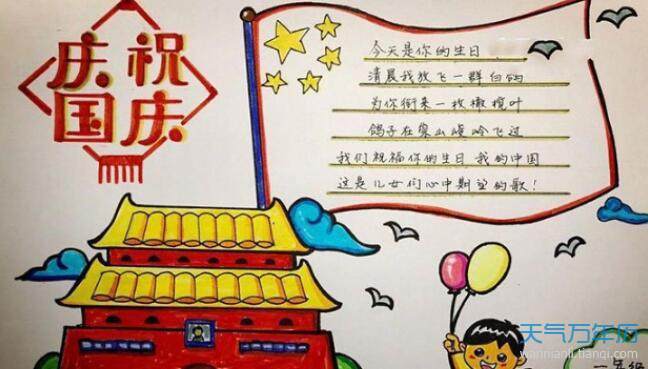 庆祝
国庆
今天是你的生日
清晨我放飞一群白鸽
为你衔来一枚橄榄叶
鸽子在崇山峻岭飞过
我们祝福你的生日 我的中国
这是儿女们心中期望的歌!
天气万年历
wannianli.tianqi.com